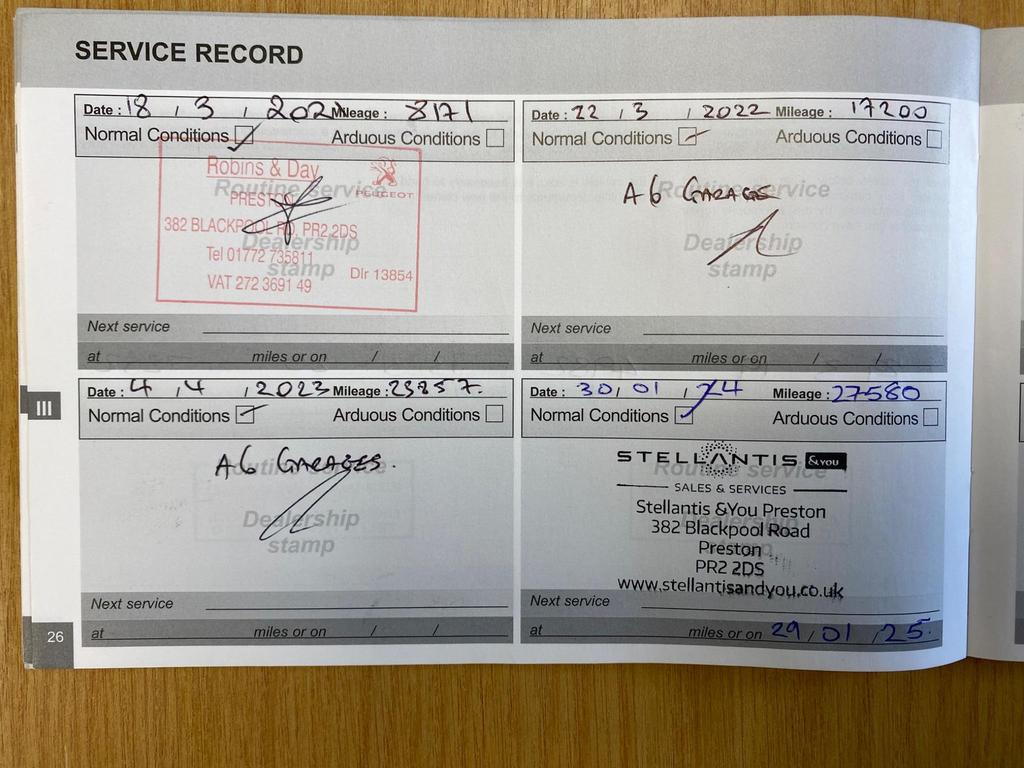 SERVICE RECORD
Date : 18 / 3 / 2021 Mileage : 8171
Normal Conditions Arduous Conditions
Robins & Day
PEUGEOT
Routine service
PRESTON
382 BLACKPOOL RD, PR2 2DS
Dealership
Tel 01772 735811
stamp
Dlr 13854
VAT 272 3691 49
Next service
at miles or on / /
Date : 22 / 3 / 2022 Mileage : 17200
Normal Conditions Arduous Conditions
A6 GARAGES
Routine service
Dealership
stamp
Next service
at miles or on / /
III
Date : 4 / 4 / 2023 Mileage : 23857.
Normal Conditions Arduous Conditions
A6 GARAGES.
Routine service
Dealership
stamp
Next service
at miles or on / /
Date : 30 / 01 / 24 Mileage : 27580
Normal Conditions Arduous Conditions
STELLANTIS &YOU
Routine service
SALES & SERVICES
Stellantis &You Preston
382 Blackpool Road
Dealership
Preston
stamp
PR2 2DS
www.stellantisandyou.co.uk
Next service
at miles or on 29 / 01 / 25.
26